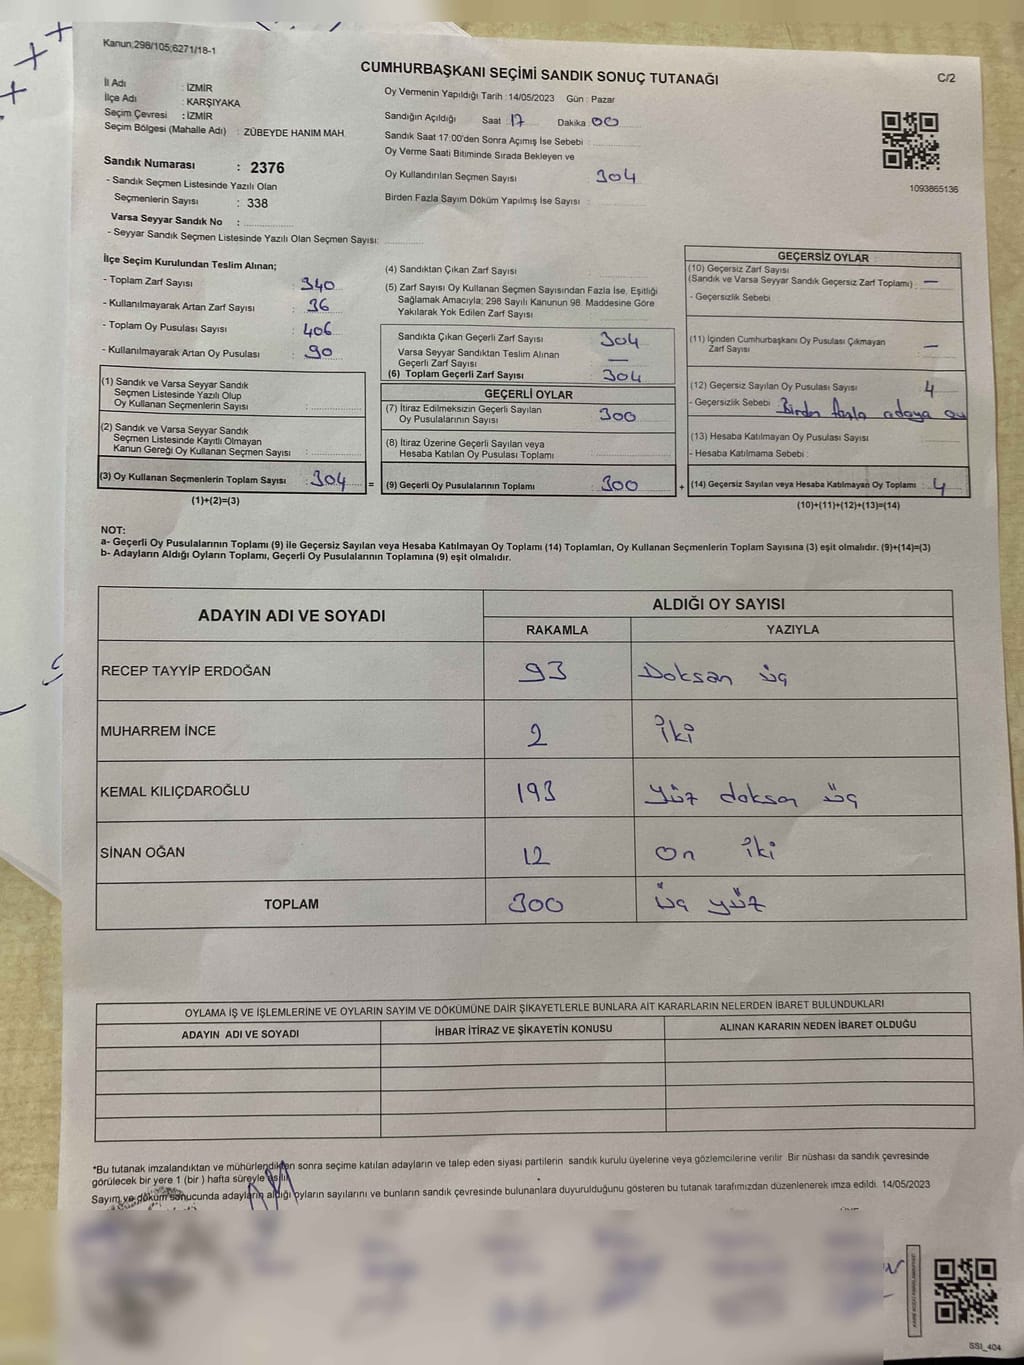 Kanun;298/105;6271/18-1
CUMHURBAŞKANI SEÇİMİ SANDIK SONUÇ TUTANAĞI
C/2
İl Adı : İZMİR
İlçe Adı : KARŞIYAKA
Seçim Çevresi : İZMİR
Seçim Bölgesi (Mahalle Adı) : ZÜBEYDE HANIM MAH.
Sandık Numarası : 2376
- Sandık Seçmen Listesinde Yazılı Olan
Seçmenlerin Sayısı : 338
Varsa Seyyar Sandık No :
- Seyyar Sandık Seçmen Listesinde Yazılı Olan Seçmen Sayısı:
Oy Vermenin Yapıldığı Tarih : 14/05/2023 Gün : Pazar
Sandığın Açıldığı Saat 17 Dakika 00
Sandık Saat 17:00'den Sonra Açımış İse Sebebi :
Oy Verme Saati Bitiminde Sırada Bekleyen ve
Oy Kullandırılan Seçmen Sayısı 304
Birden Fazla Sayım Döküm Yapılmış İse Sayısı :
1093865136
İlçe Seçim Kurulundan Teslim Alınan;
- Toplam Zarf Sayısı : 340
- Kullanılmayarak Artan Zarf Sayısı : 36
- Toplam Oy Pusulası Sayısı : 406
- Kullanılmayarak Artan Oy Pusulası : 90
(1) Sandık ve Varsa Seyyar Sandık
Seçmen Listesinde Yazılı Olup
Oy Kullanan Seçmenlerin Sayısı :
(2) Sandık ve Varsa Seyyar Sandık
Seçmen Listesinde Kayıtlı Olmayan
Kanun Gereği Oy Kullanan Seçmen Sayısı :
(3) Oy Kullanan Seçmenlerin Toplam Sayısı : 304 =
(1)+(2)=(3)
(4) Sandıktan Çıkan Zarf Sayısı
(5) Zarf Sayısı Oy Kullanan Seçmen Sayısından Fazla İse, Eşitliği
Sağlamak Amacıyla; 298 Sayılı Kanunun 98. Maddesine Göre
Yakılarak Yok Edilen Zarf Sayısı
Sandıkta Çıkan Geçerli Zarf Sayısı 304
Varsa Seyyar Sandıktan Teslim Alınan
Geçerli Zarf Sayısı —
(6) Toplam Geçerli Zarf Sayısı 304
GEÇERLİ OYLAR
(7) İtiraz Edilmeksizin Geçerli Sayılan
Oy Pusulalarının Sayısı 300
(8) İtiraz Üzerine Geçerli Sayılan veya
Hesaba Katılan Oy Pusulası Toplamı
(9) Geçerli Oy Pusulalarının Toplamı 300 +
GEÇERSİZ OYLAR
(10) Geçersiz Zarf Sayısı
(Sandık ve Varsa Seyyar Sandık Geçersiz Zarf Toplamı) : —
- Geçersizlik Sebebi
(11) İçinden Cumhurbaşkanı Oy Pusulası Çıkmayan
Zarf Sayısı —
(12) Geçersiz Sayılan Oy Pusulası Sayısı 4
- Geçersizlik Sebebi Birden fazla adaya oy
(13) Hesaba Katılmayan Oy Pusulası Sayısı
- Hesaba Katılmama Sebebi :
(14) Geçersiz Sayılan veya Hesaba Katılmayan Oy Toplamı : 4
(10)+(11)+(12)+(13)=(14)
NOT:
a- Geçerli Oy Pusulalarının Toplamı (9) ile Geçersiz Sayılan veya Hesaba Katılmayan Oy Toplamı (14) Toplamları, Oy Kullanan Seçmenlerin Toplam Sayısına (3) eşit olmalıdır. (9)+(14)=(3)
b- Adayların Aldığı Oyların Toplamı, Geçerli Oy Pusulalarının Toplamına (9) eşit olmalıdır.
ADAYIN ADI VE SOYADI ALDIĞI OY SAYISI
RAKAMLA YAZIYLA
RECEP TAYYİP ERDOĞAN 93 Doksan üç
MUHARREM İNCE 2 İki
KEMAL KILIÇDAROĞLU 193 Yüz doksan üç
SİNAN OĞAN 12 On iki
TOPLAM 300 üç yüz
OYLAMA İŞ VE İŞLEMLERİNE VE OYLARIN SAYIM VE DÖKÜMÜNE DAİR ŞİKAYETLERLE BUNLARA AİT KARARLARIN NELERDEN İBARET BULUNDUKLARI
ADAYIN ADI VE SOYADI İHBAR İTİRAZ VE ŞİKAYETİN KONUSU ALINAN KARARIN NEDEN İBARET OLDUĞU
*Bu tutanak imzalandıktan ve mühürlendikten sonra seçime katılan adayların ve talep eden siyasi partilerin sandık kurulu üyelerine veya gözlemcilerine verilir. Bir nüshası da sandık çevresinde
görülecek bir yere 1 (bir ) hafta süreyle asılır.
Sayım ve döküm sonucunda adayların aldığı oyların sayılarını ve bunların sandık çevresinde bulunanlara duyurulduğunu gösteren bu tutanak tarafımızdan düzenlenerek imza edildi. 14/05/2023
SSI_404